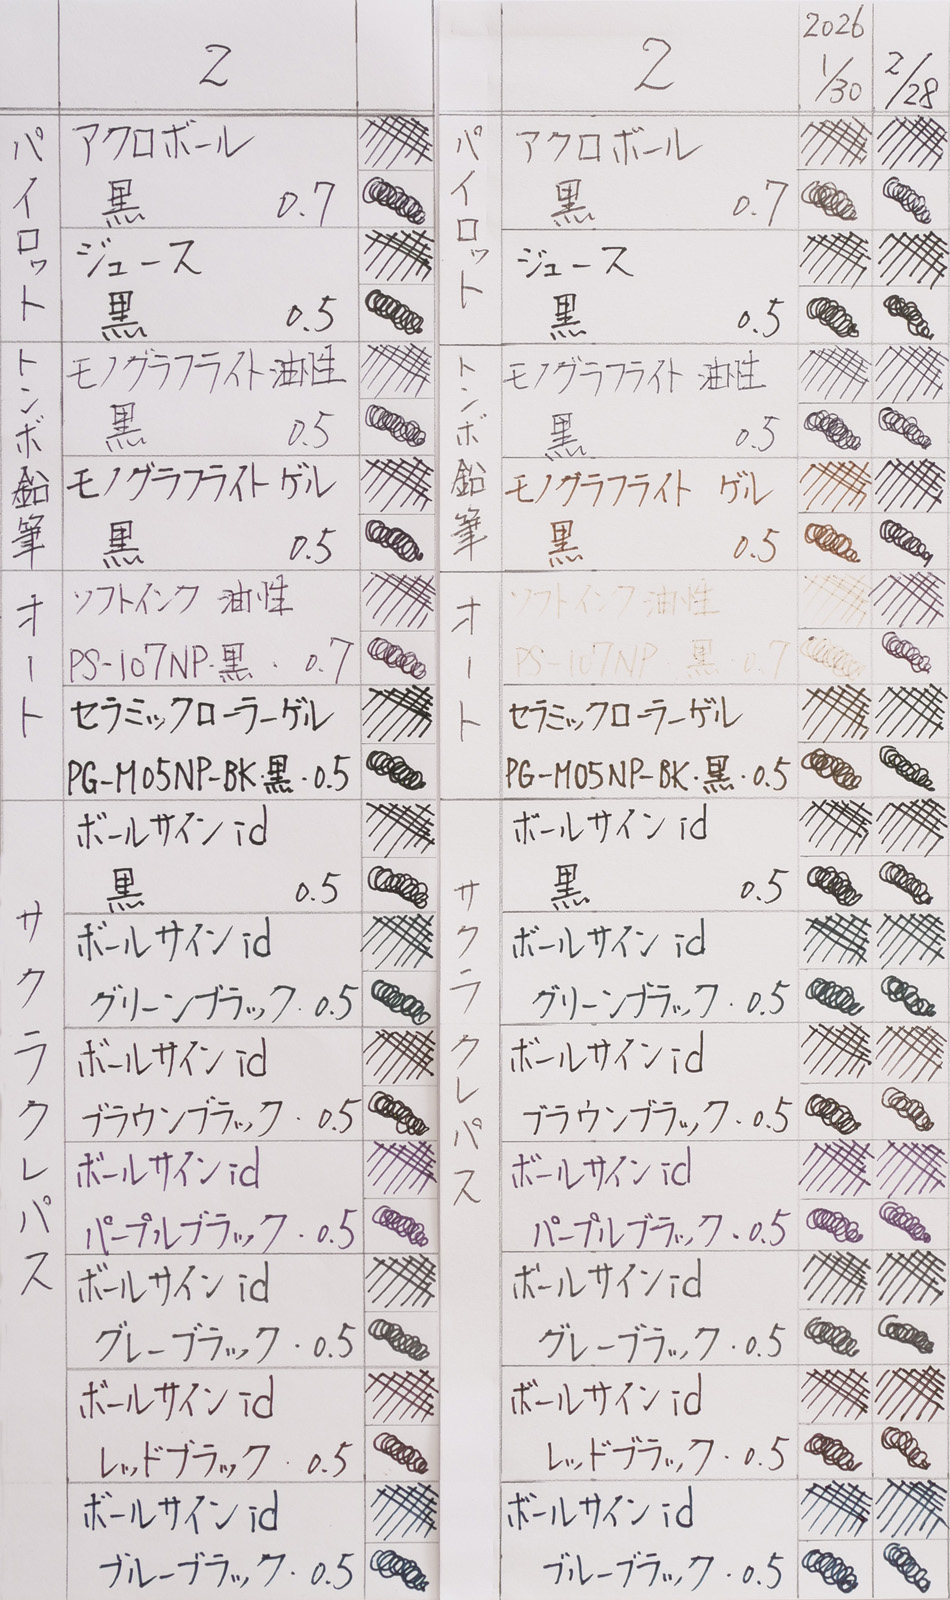 2
パイロット
アクロボール
黒 0.7
ジュース
黒 0.5
トンボ鉛筆
モノグラフライト 油性
黒 0.5
モノグラフライト ゲル
黒 0.5
オート
ソフトインク 油性
PS-107NP・黒・0.7
セラミックローラーゲル
PG-M05NP-BK・黒・0.5
サクラクレパス
ボールサイン id
黒 0.5
ボールサイン id
グリーンブラック・0.5
ボールサイン id
ブラウンブラック・0.5
ボールサイン id
パープルブラック・0.5
ボールサイン id
グレーブラック・0.5
ボールサイン id
レッドブラック・0.5
ボールサイン id
ブルーブラック・0.5
2
2026
1/30
2/28
パイロット
アクロボール
黒 0.7
ジュース
黒 0.5
トンボ鉛筆
モノグラフライト 油性
黒 0.5
モノグラフライト ゲル
黒 0.5
オート
ソフトインク 油性
PS-107NP 黒・0.7
セラミックローラーゲル
PG-M05NP-BK・黒・0.5
サクラクレパス
ボールサイン id
黒 0.5
ボールサイン id
グリーンブラック・0.5
ボールサイン id
ブラウンブラック・0.5
ボールサイン id
パープルブラック・0.5
ボールサイン id
グレーブラック・0.5
ボールサイン id
レッドブラック・0.5
ボールサイン id
ブルーブラック・0.5